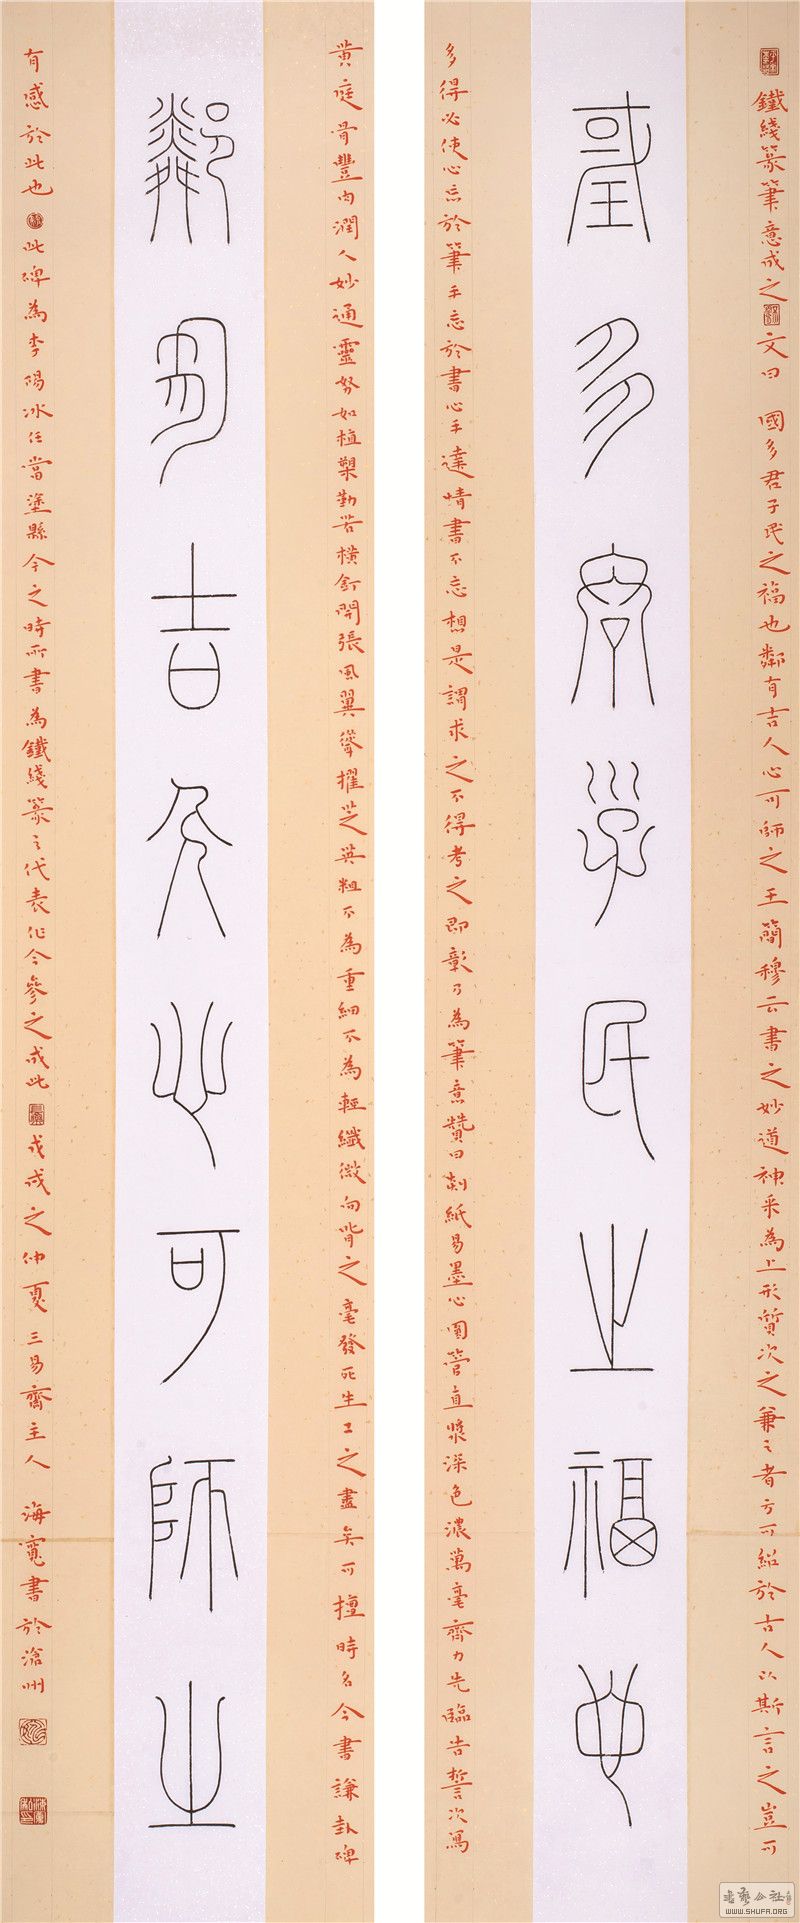 鐵綫篆筆意成之 文曰 國多君子民之福也鄰有吉人心可師之王簡穆云書之妙道神采為上形質次之兼之者方可紹於古人以斯言之豈可
國多君子民之福也
多得必使心忘於筆手忘於書心手達情書不忘想是謂求之不得考之即彰乃為筆意贊曰剡紙易墨心圓管直漿深色濃萬毫齊力先臨告誓次寫
黄庭骨豐肉潤入妙通靈努如植槊勒若横釘開張鳳翼聳擢芝英粗不為重細不為輕纖微向背之毫發死生工之盡矣可擅時名今書謙卦碑
鄰有吉人心可師之
有感於此也 此碑為李陽冰任當塗縣令之時所書為鐵綫篆之代表作今參之成此 戊戌之仲夏 三易齋主人 海寬書於滄州
书艺公社
WWW.SHUFA.ORG